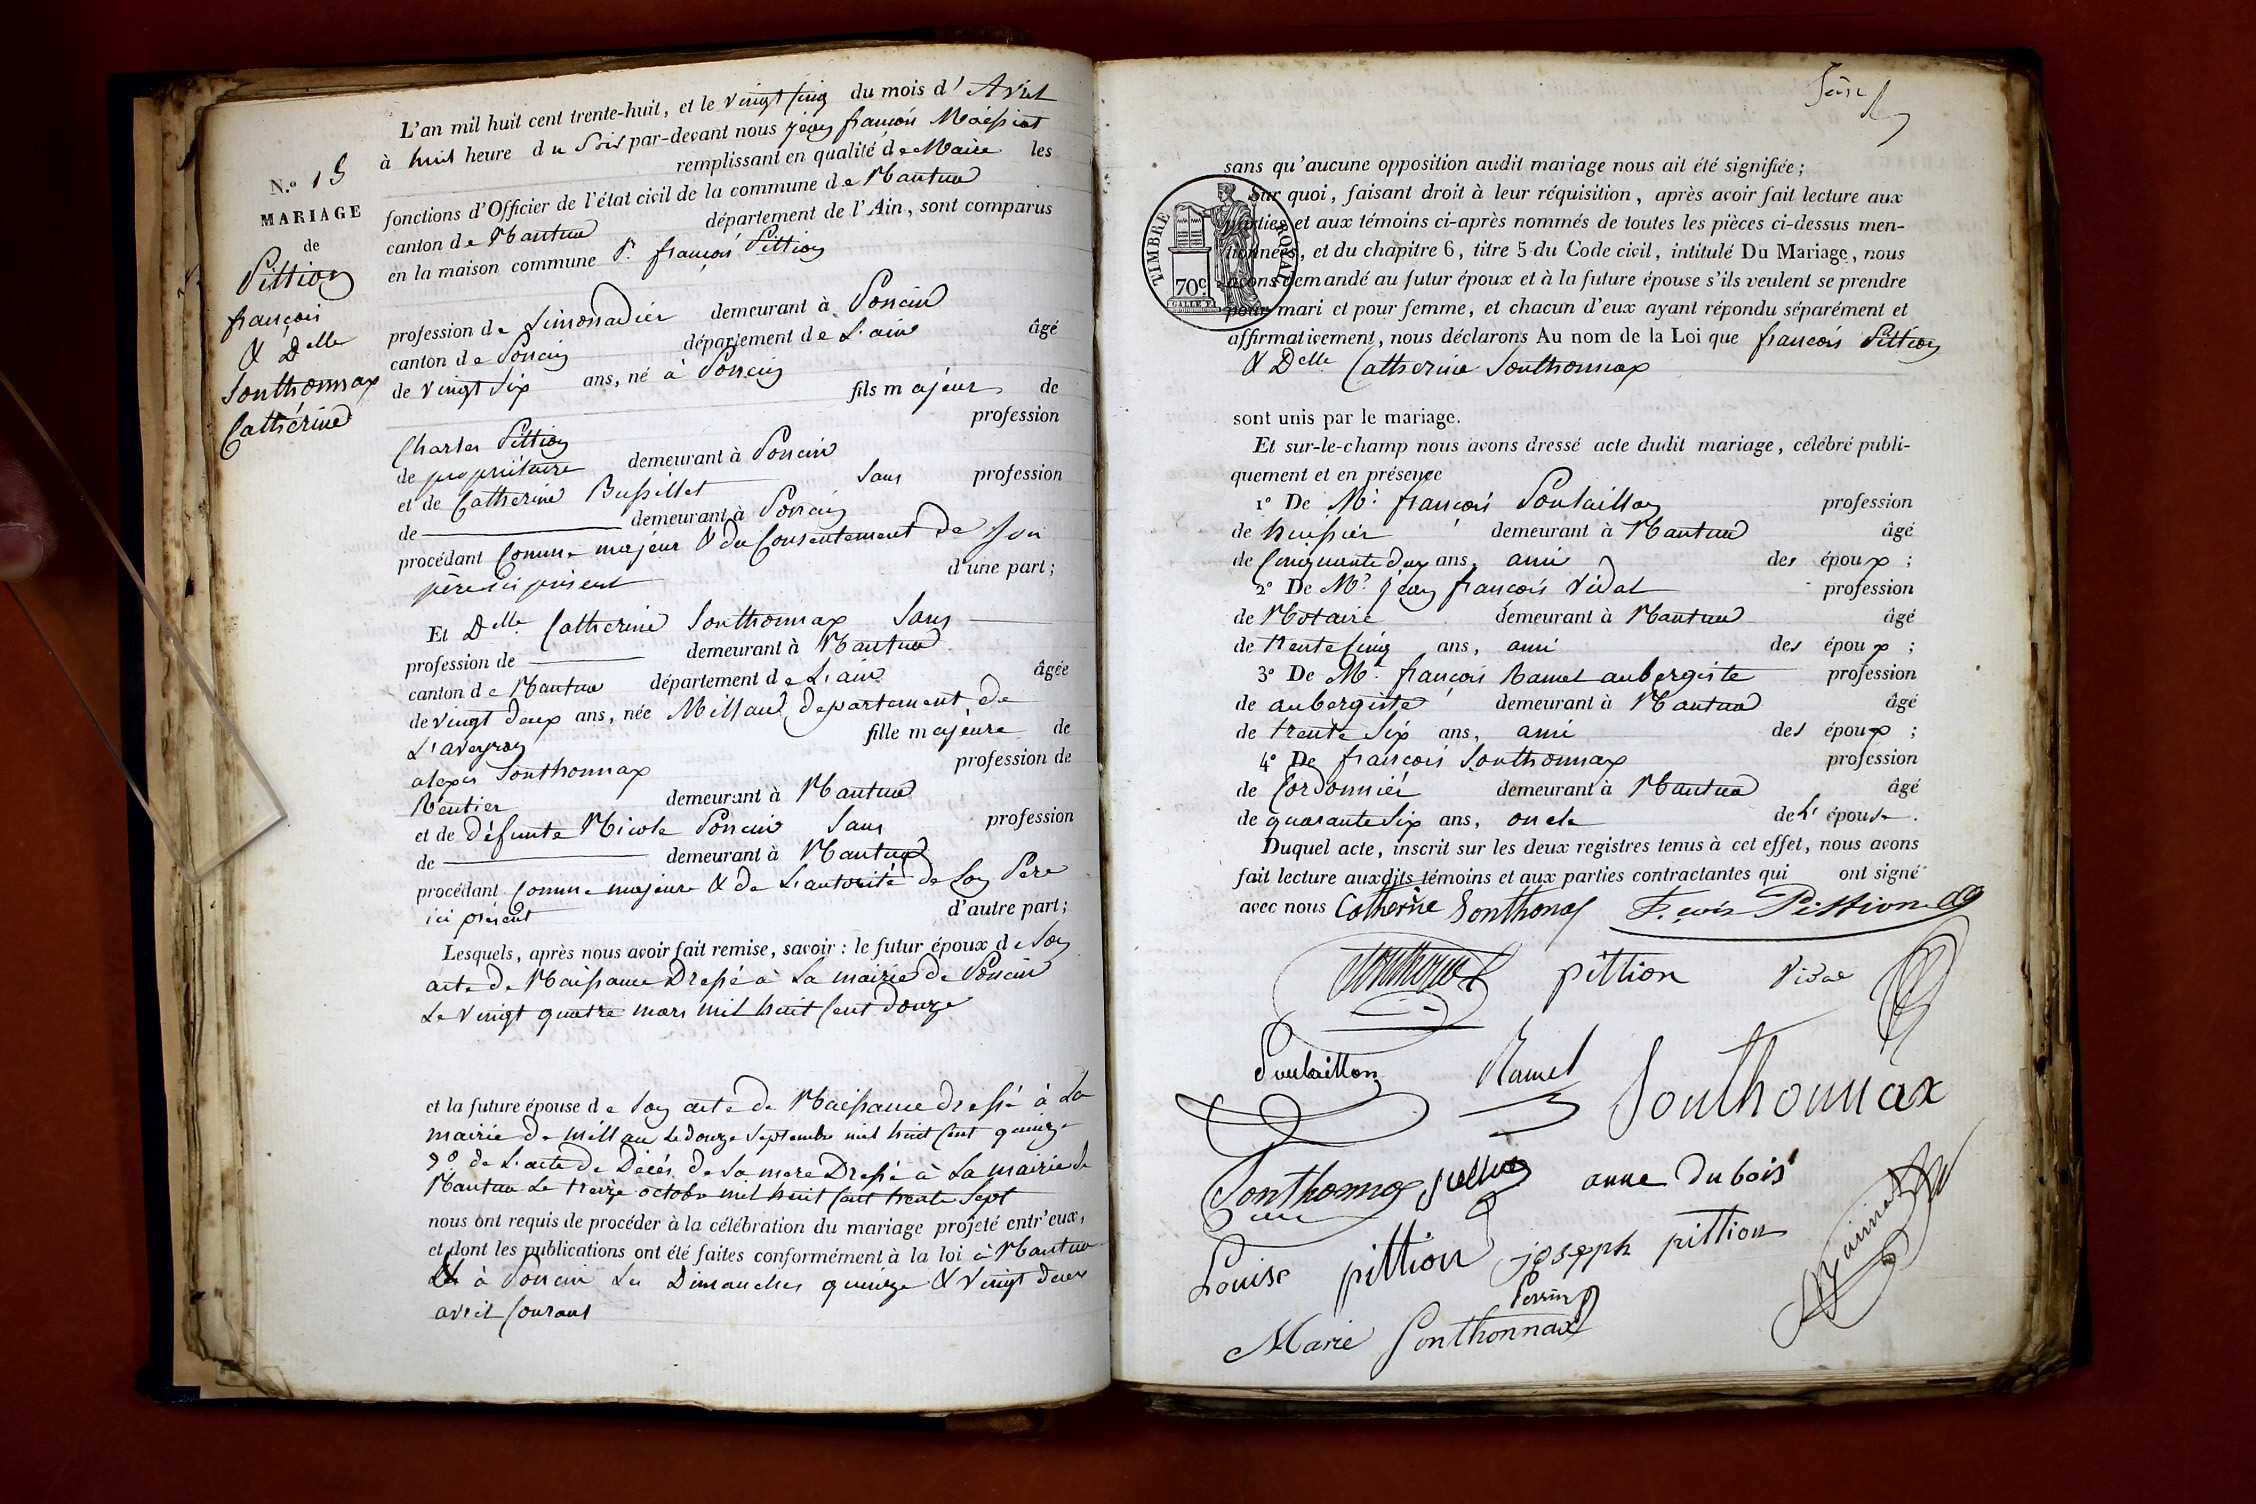 L'an mil huit cent trente-huit, et le vingt cinq du mois d'Avril
à huit heure du Soir par-devant nous jean françois
remplissant en qualité de Maire les
fonctions d'Officier de l'état civil de la commune de Nantua
canton de Nantua département de l'Ain, sont comparus
en la maison commune Sr. françois Pittion
N.o 15
MARIAGE
de
Pittion
françois
& Delle
Sonthonnax
Cathérine
profession de Limonadier demeurant à Poncin
canton de Poncin département de L'ain âgé
de vingt Six ans, né à Poncin
fils majeur de
Charles Pittion profession
de propriétaire demeurant à Poncin
et de Catherine Bussillet Sans profession
de demeurant à Poncin
procédant Comme majeur & du Consentement de Son
père ici présent d'une part;
Et Delle Catherine Sonthonnax Sans
profession de demeurant à Nantua
canton de Nantua département de L'ain âgée
de vingt deux ans, née Millau departement de
L'aveyron fille majeure de
alexis Sonthonnax profession de
Rentier demeurant à Nantua
et de défunte Nicole Poncin Sans profession
de demeurant à Nantua
procédant Comme majeure & de L'autorité de Son Père
ici présent d'autre part;
Lesquels, après nous avoir fait remise, savoir : le futur époux de Son
acte de Naissance Dressé à La mairie de Poncin
Le vingt quatre mars mil huit Cent douze
et la future épouse de Son acte de Naissance dressé à La
mairie de Millau Le douze Septembre mil huit Cent quinze
2o de L'acte de Décès de Sa mere Dressé à La mairie de
Nantua Le treize octobre mil huit Cent trente Sept
nous ont requis de procéder à la célébration du mariage projeté entr'eux,
et dont les publications ont été faites conformément à la loi à Nantua
& à Poncin Les Dimanches quinze & vingt deux
avril Courant
sans qu'aucune opposition audit mariage nous ait été signifiée;
Sur quoi, faisant droit à leur réquisition, après avoir fait lecture aux
parties et aux témoins ci-après nommés de toutes les pièces ci-dessus men-
tionnées, et du chapitre 6, titre 5 du Code civil, intitulé Du Mariage, nous
avons demandé au futur époux et à la future épouse s'ils veulent se prendre
pour mari et pour femme, et chacun d'eux ayant répondu séparément et
affirmativement, nous déclarons Au nom de la Loi que françois Pittion
& Delle Catherine Sonthonnax
TIMBRE ROYAL
70c
sont unis par le mariage.
Et sur-le-champ nous avons dressé acte dudit mariage, célébré publi-
quement et en présence
1o De Mr. françois Poulaillon profession
de huissier demeurant à Nantua âgé
de Cinquante deux ans, ami des époux ;
2o De Mr. jean françois Vidal profession
de Notaire demeurant à Nantua âgé
de trente Cinq ans, ami des époux ;
3o De Mr. françois Ramel aubergiste profession
de aubergiste demeurant à Nantua âgé
de trente Six ans, ami des époux ;
4o De françois Sonthonnax profession
de Cordonnier demeurant à Nantua âgé
de quarante Six ans, oncle de L' épouse.
Duquel acte, inscrit sur les deux registres tenus à cet effet, nous avons
fait lecture auxdits témoins et aux parties contractantes qui ont signé
avec nous Catherine Sonthonax F.çois Pittion
pittion Vidal
Poulaillon Ramel Sonthonnax
Sonthonnax anne Dubois
Louise pittion joseph pittion
Perrin
Marie Sonthonnax